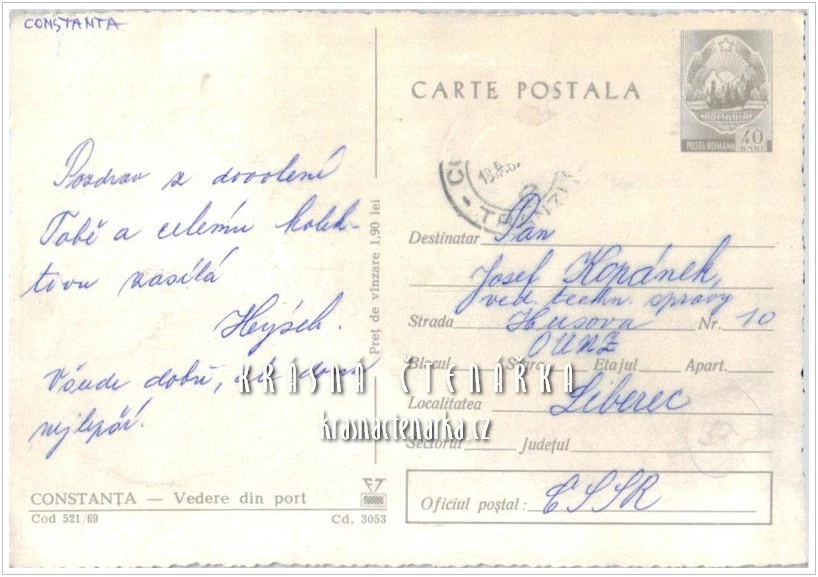 CONSTANTA
CARTE POSTALA
ROMANIA
POSTA ROMANA
40
BANI
Pozdrav z dovolené
Tobě a celému kolek-
tivu zasílá
Heýsek.
Všude dobře, ale doma
nejlépe!
Preț de vînzare 1,90 lei
Destinatar Pan
Josef Kopánek,
ved. techn. správy
Strada Husova Nr. 10
OUNZ
Blocul Scara Etajul Apart.
Localitatea Liberec
Sectorul Județul
Oficiul poștal: ČSSR
KRÁSNÁ ČTENÁŘKA
krasnactenarka.cz
CONSTANȚA — Vedere din port
Cod 521/69
Cd. 3053